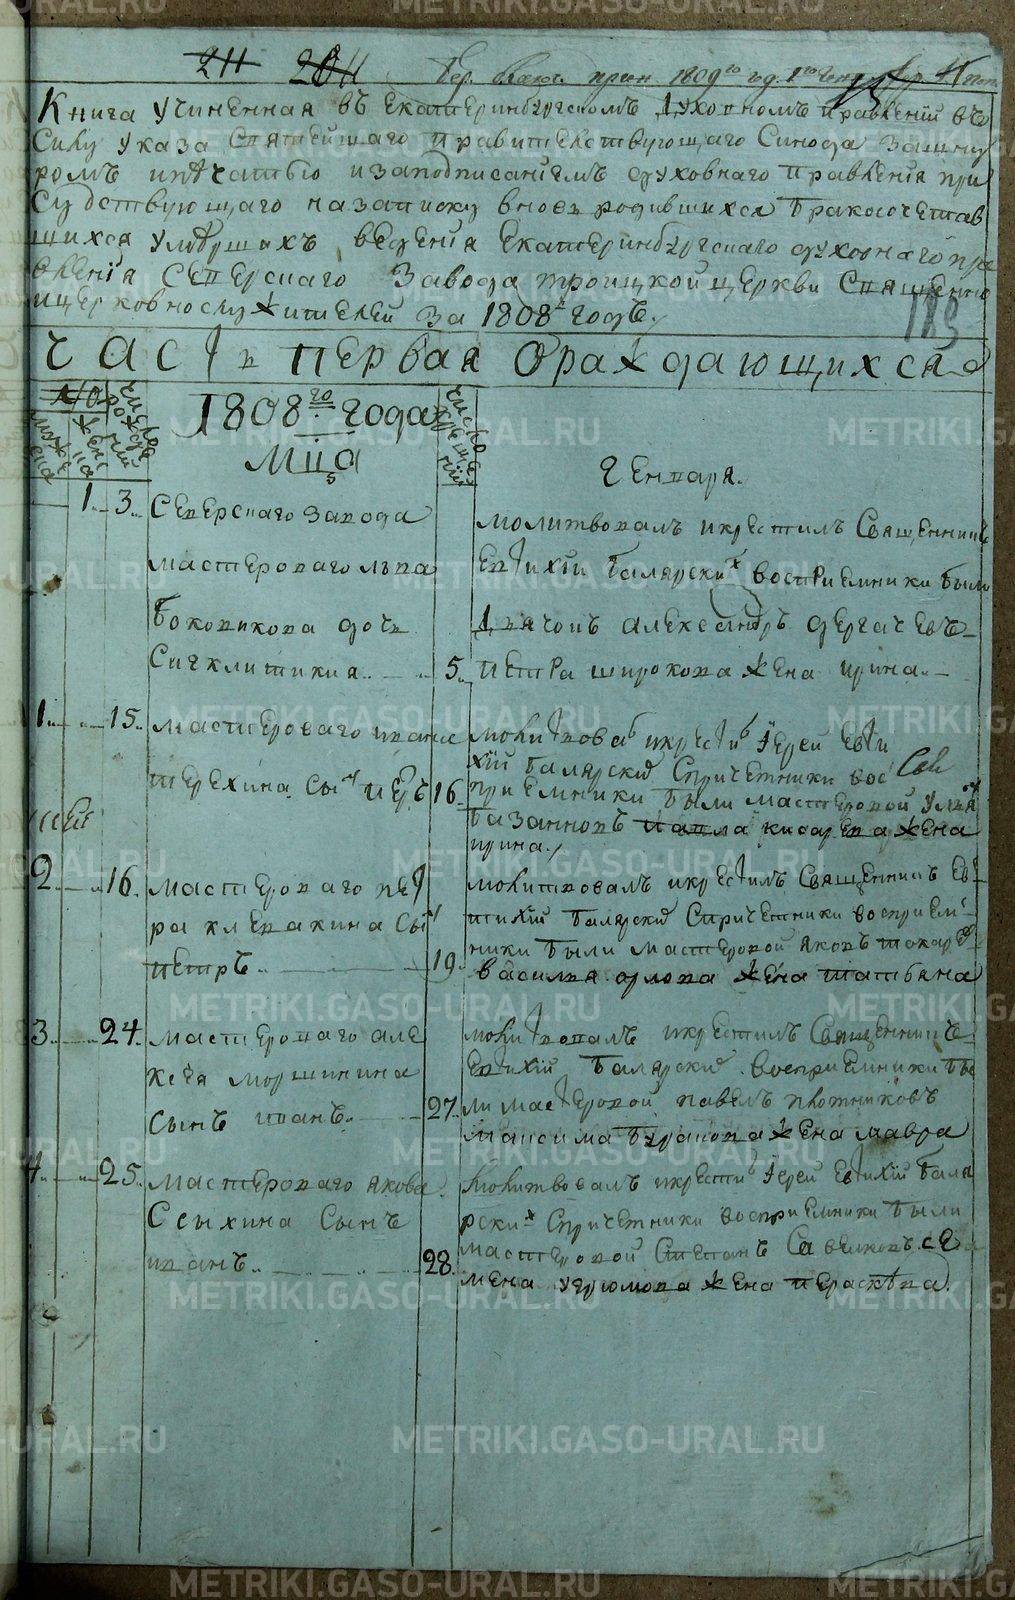 211 2011 прин 1809го год.
Книга учиненная въ Екатеринбургскомъ Духовномъ правленiи въ
Силу указа Святейшаго правительствующаго Синода зашну
ромъ ипѣчатью изаподписанiемъ духовнаго правленiя при
Судствующаго назаписку вновь родившихся бракосочетав
шихся умѣршихъ ведения Екатеринбургскаго духовнаго пра
вленiя Северскаго Завода троицкой церкви Священно
ицерковнослужителей за 1808й годъ.
183
Часть первая Ораждающихся
1808го года
Мца Генваря.
число рождений
число крещений
мужеска
женска
1 3 Северскаго завода
мастероваго льва
Боковикова дочь
Сигклитикия 5
молитвовалъ икрестилъ Священникъ
Евтихiй Балярский восприемники были
Дьячокъ александръ дергачевъ
петра широкова жена ирина
1 15 мастероваго ивана
терехина сынъ 16
молитвовалъ икрестилъ Iерей Евти
хiй Балярский Спричетники вос
приемники были мастеровой
Базанновъ павла кисарева жена
ирина
2 16 мастероваго пет
ра клевакина сынъ
петръ 19
молитвовалъ икрестилъ Священникъ Ев
тихiй Балярский Спричетники восприем
ники были мастеровой яковъ токарев
василья орлова жена татьяна
3 24 мастероваго але
ксея моршинина
сынъ иванъ 27
молитвовалъ икрестилъ Священникъ
Евтихiй Балярский восприемники бы
ли мастеровой павелъ плотниковъ
максима буракова жена мавра
4 25 мастероваго якова
Ссыхина сынъ
иванъ 28
молитвовалъ икрести Iерей Евтихiй Баля
рский Спричетники восприемники были
мастеровой Степанъ Савелковъ се
мена угрюмова жена параскѣва
METRIKI.GASO-URAL.RU